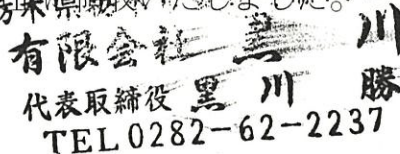 いたしました。
有限会社 黒川
代表取締役 黒川 勝
TEL0282-62-2237